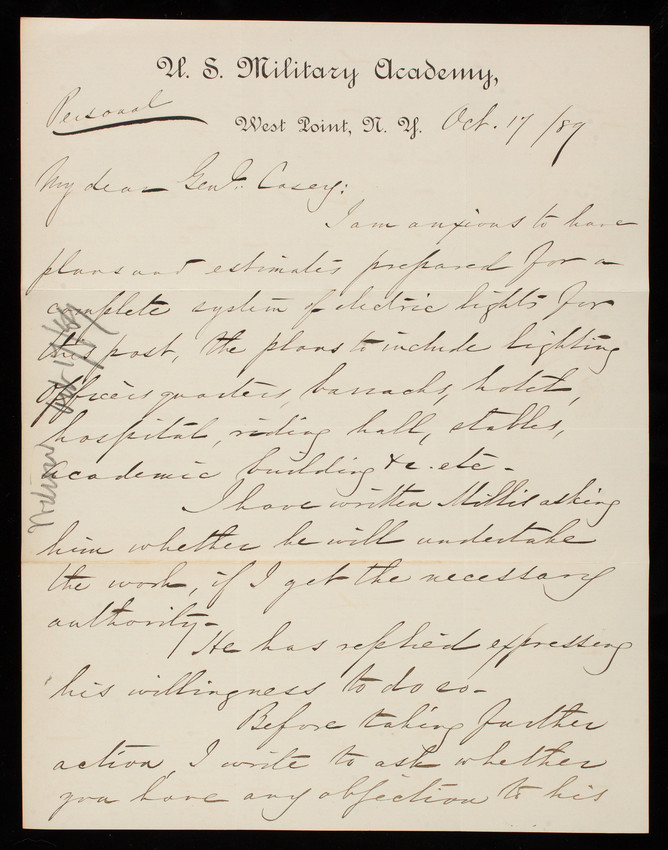 U. S. Military Academy,
Personal
West Point, N. Y. Oct. 17 /89
My dear Genl. Casey:
I am anxious to have
plans and estimates prepared for a
complete system of electric lights for
this post, the plans to include lighting
Officers quarters, barracks, hotel,
hospital, riding hall, stables,
academic building &c. etc -
I have written Millis asking
him whether he will undertake
the work, if I get the necessary
authority -
He has replied expressing
his willingness to do so -
Before taking further
action, I write to ask whether
you have any objection to his